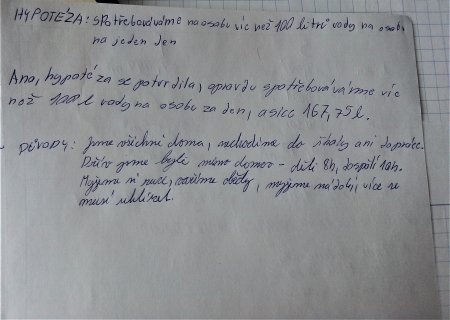 HYPOTÉZA: spotřebováváme na osobu víc než 100 litrů vody na osobu
na jeden den
Ano, hypotéza se potvrdila, opravdu spotřebováváme víc
než 100 l vody na osobu za den, a sice 167,75 l.
DŮVODY: Jsme všichni doma, nechodíme do školy ani do práce.
Dřív jsme byli mimo domov - děti 8h, dospělí 10h.
Myjeme si ruce, vaříme obědy, myjeme nádobí, více se
musí uklízet.